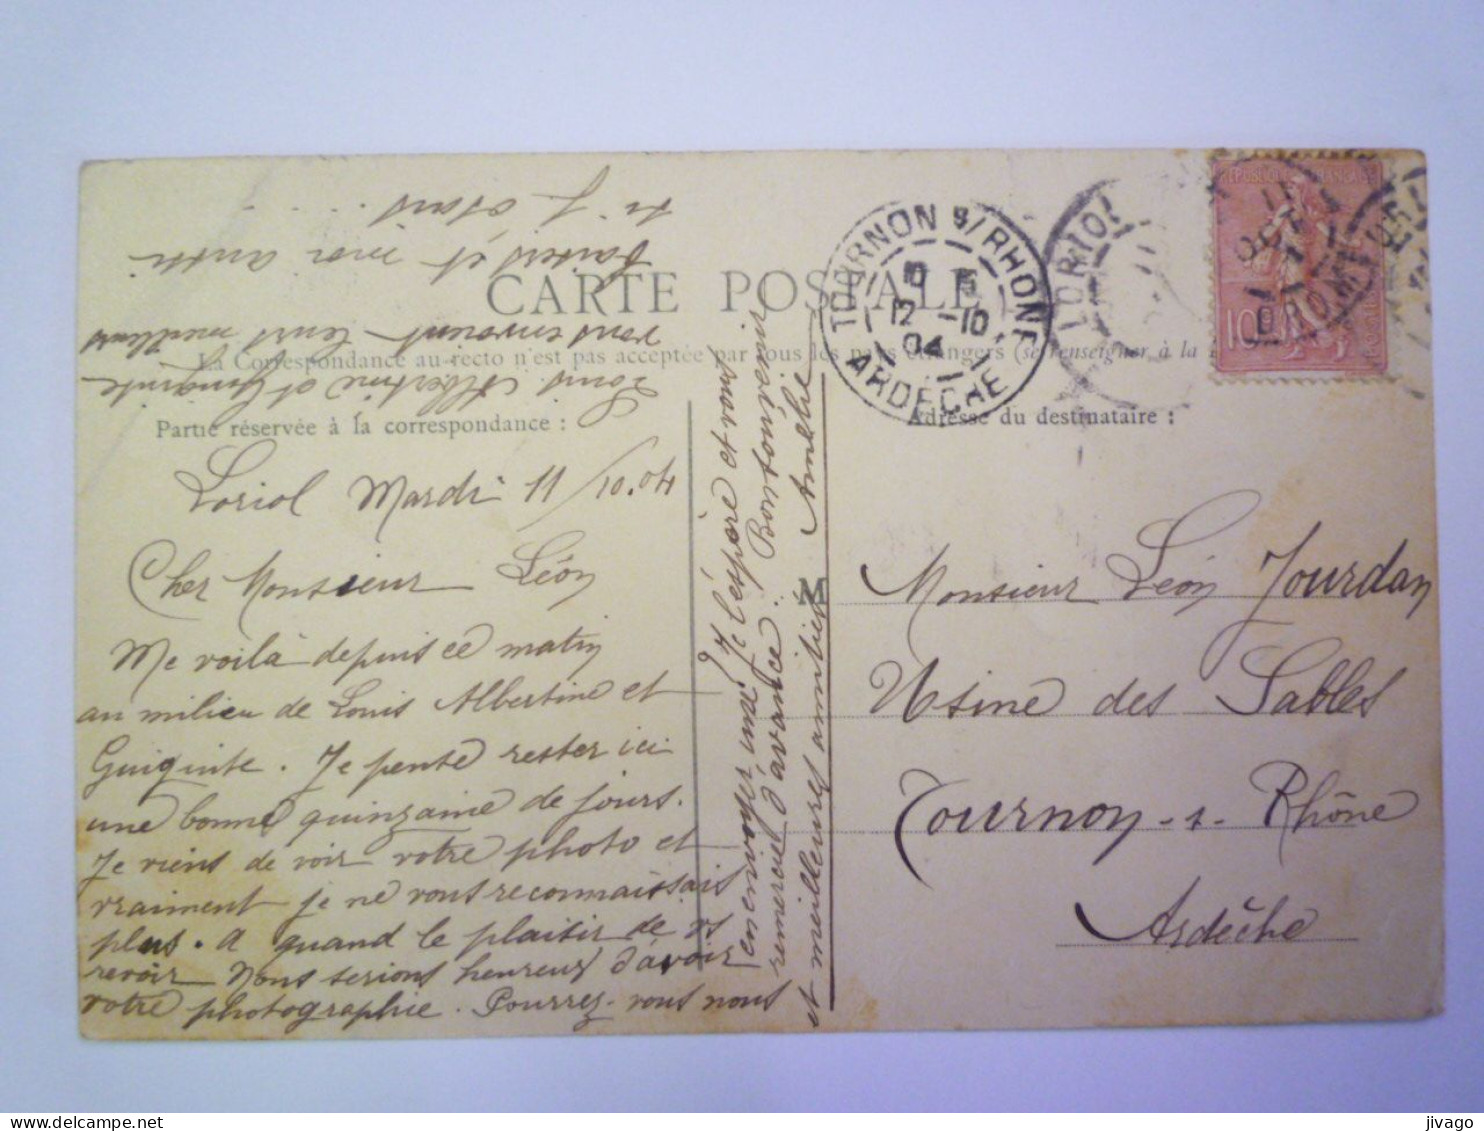 CARTE POSTALE
La Correspondance au recto n'est pas acceptée par tous les pays étrangers (se renseigner à la
Partie réservée à la correspondance :
Adresse du destinataire :
Loriol Mardi 11/10.04
Cher Monsieur Léon
Me voilà depuis ce matin
au milieu de Louis Albertine et
Guiginte. Je pense rester ici
une bonne quinzaine de jours.
Je viens de voir votre photo et
vraiment je ne vous reconnaissais
plus. A quand le plaisir de vs
revoir Nous serions heureux d'avoir
votre photographie. Pourrez-vous nous
en envoyer une? Je l'espère et vous
remercie d'avance. Bon souvenir
et meilleures amitiés Amélie
Louis Albertine et Guiginte
vous envoient leurs meilleurs
et mon
M
Monsieur Léon Jourdan
Usine des Sables
Tournon-s-Rhône
Ardèche
TOURNON S/RHONE
12 -10
04
ARDÈCHE
LORIOL
DROME
11
OCT
10
jivago